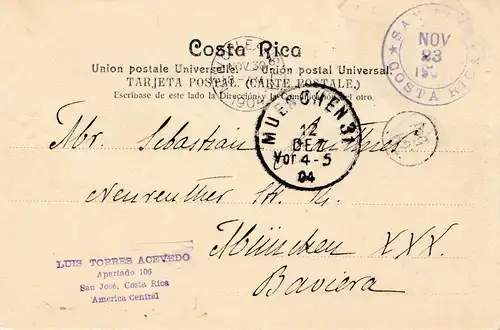 Costa Rica
Union postale Universelle. Unión postal Universal.
TARJETA POSTAL (CARTE POSTALE,)
Escríbase de este lado la Dirección y la Comunicación del otro.
NOV
23
COSTA RICA
NOV 30
MUENCHEN 31
12
DEZ
Vor 4-5
04
Mr. Sebastian
Neureuther Str.
München XXX.
Baviera
LUIS TORRES ACEVEDO
Apartado 106
San José, Costa Rica
America Central